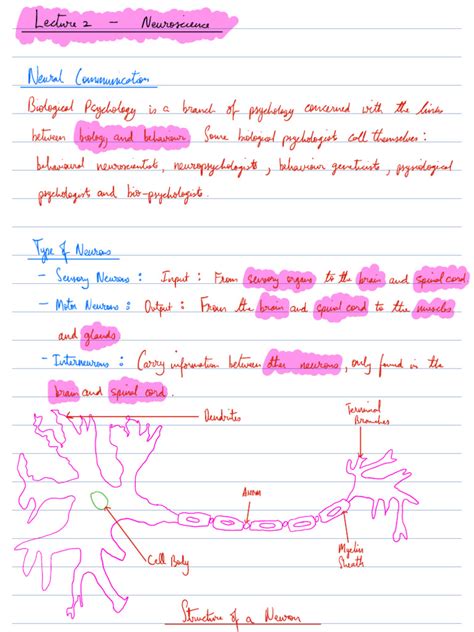 Lecture 2 - Neuroscience
Neural Communication
Biological Psychology is a branch of psychology concerned with the links
between biology and behaviour. Some biological psychologists call themselves:
behavioural neuroscientists, neuropsychologists, behaviour geneticists, physiological
psychologists and bio-psychologists.
Type of Neurons
- Sensory Neurons: Input: From sensory organs to the brain and spinal cord
- Motor Neurons: Output: From the brain and spinal cord to the muscles
and glands
- Interneurons: Carry information between other neurons, only found in the
brain and spinal cord.
Dendrites
Terminal
Branches
Axon
Cell Body
Myelin
Sheath
Structure of a Neuron